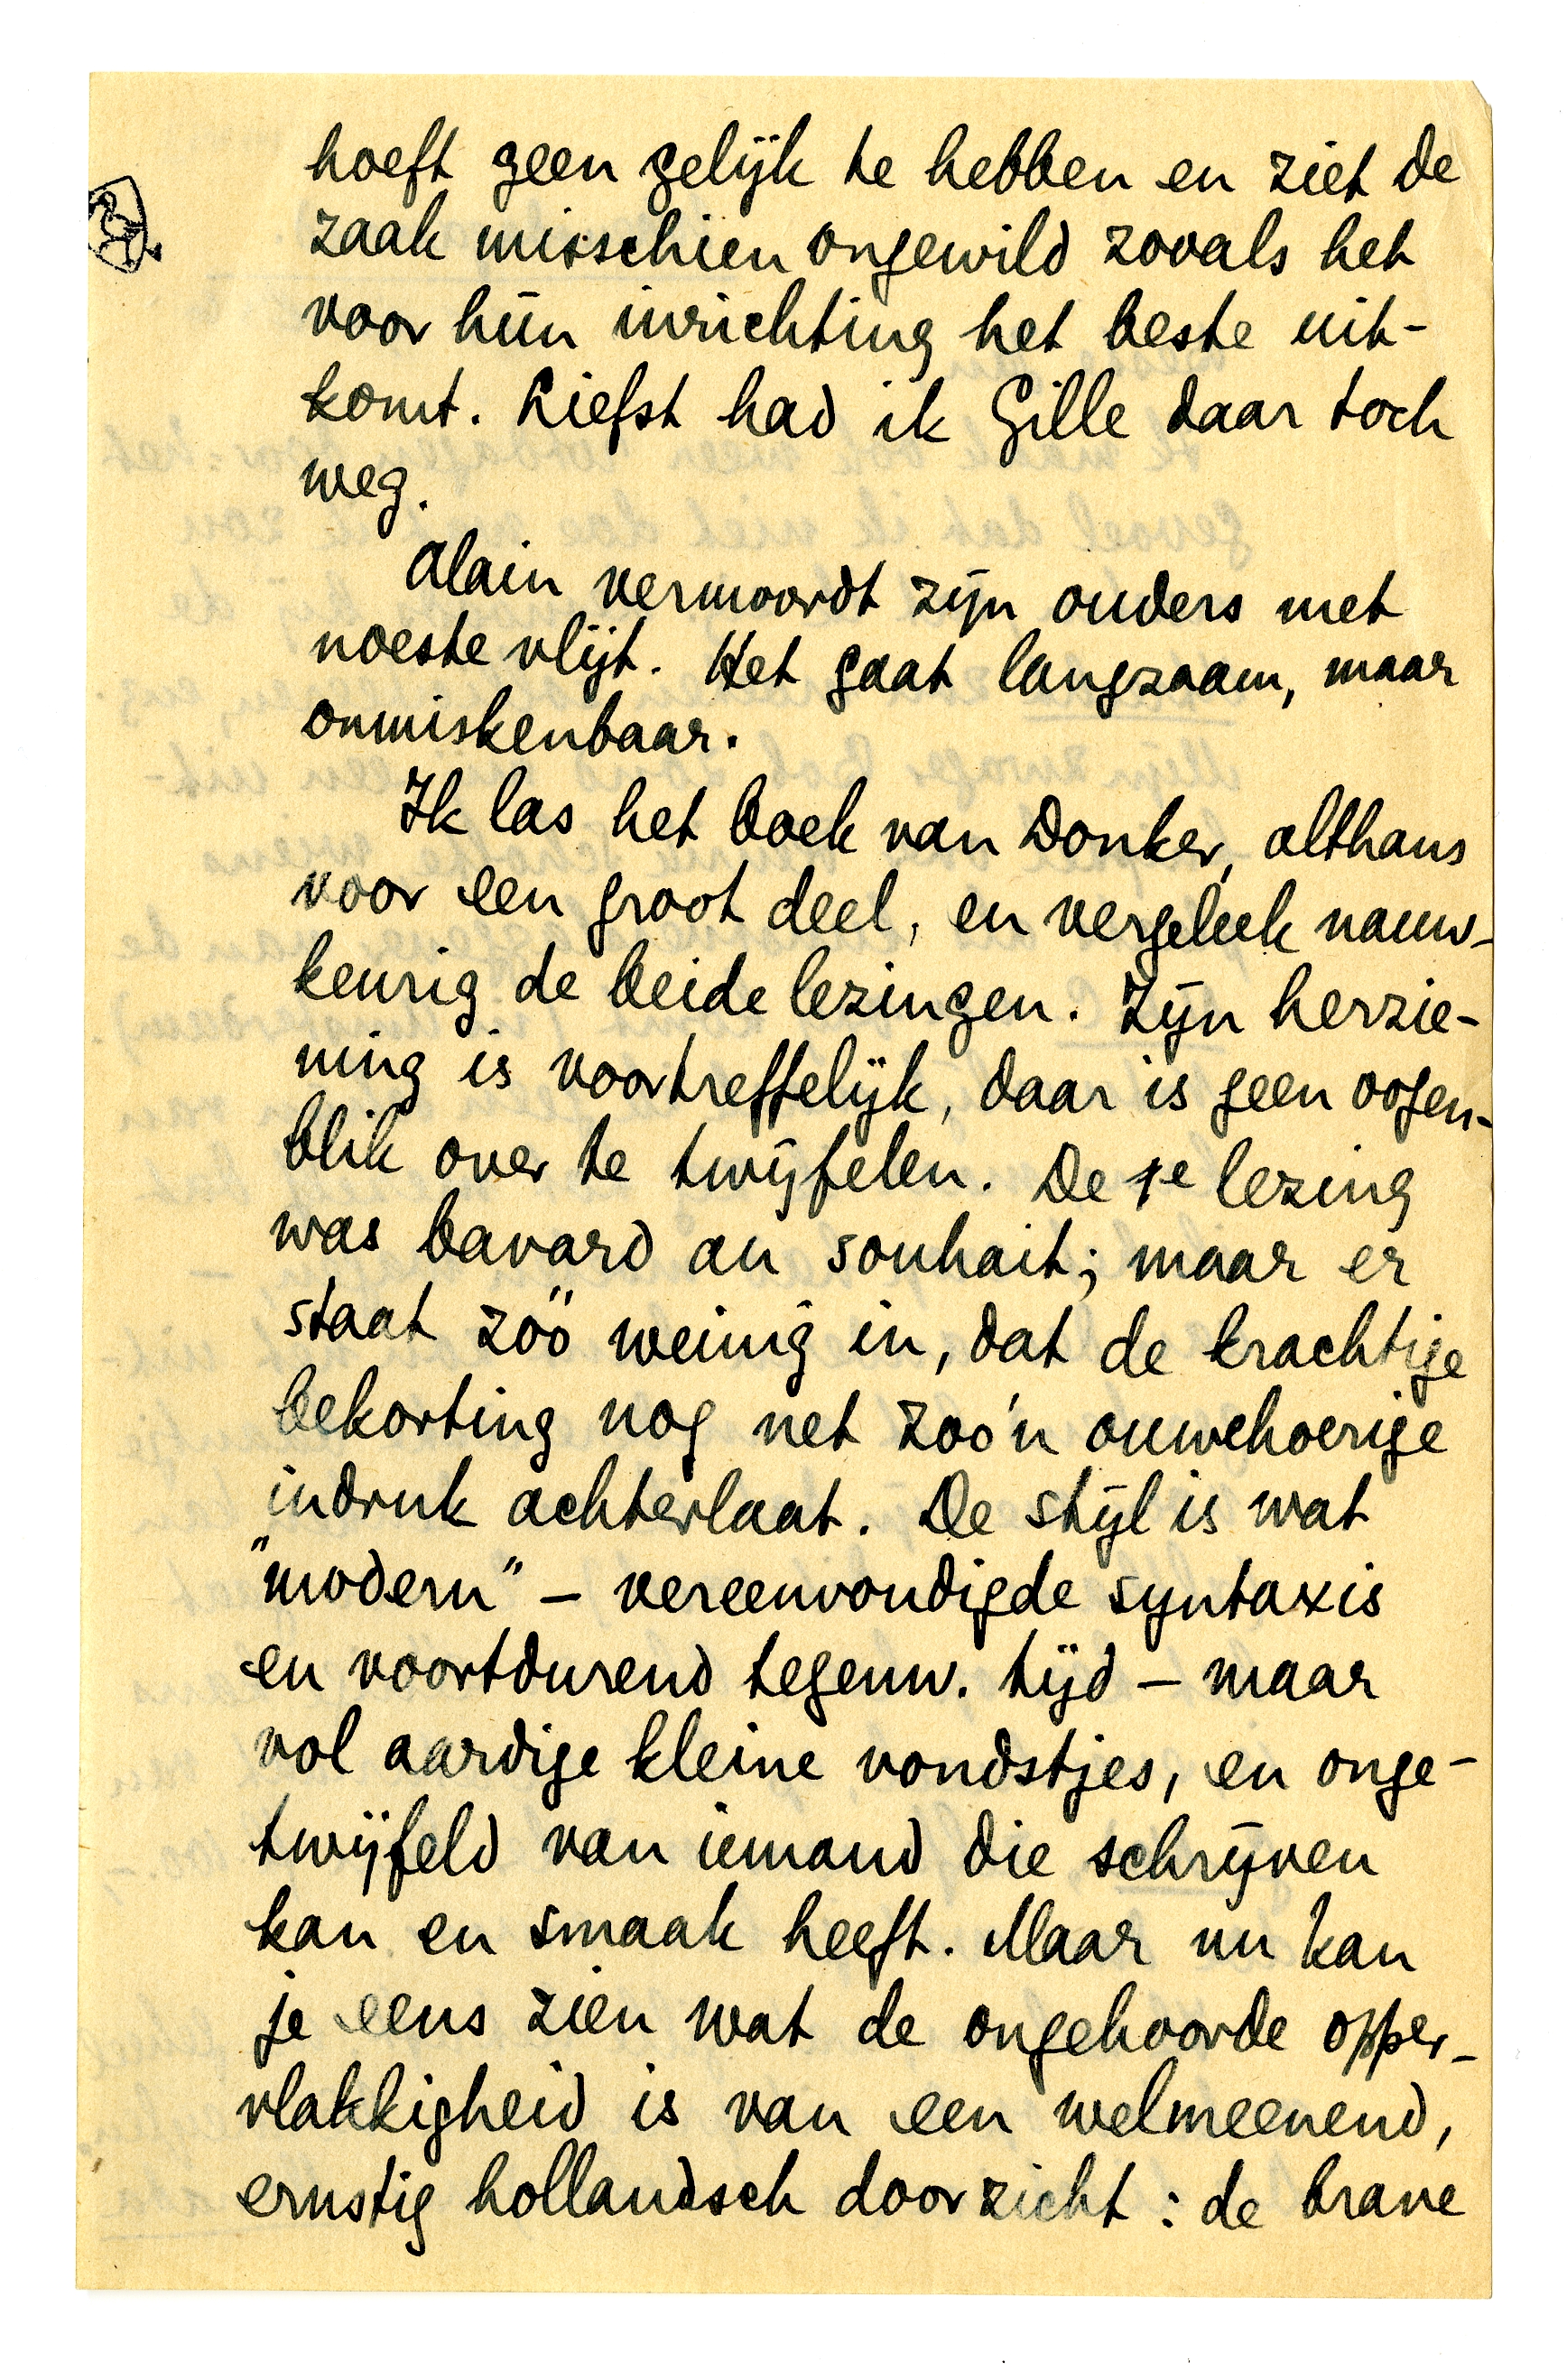 hoeft geen gelijk te hebben en ziet de
zaak misschien ongewild zooals het
voor hùn inrichting het beste uit-
komt. Liefst had ik Gille daar toch
weg.
Alain vermoordt zijn ouders met
noeste vlijt. Het gaat langzaam, maar
onmiskenbaar.
Ik las het boek van Donker, althans
voor een groot deel, en vergeleek nauw-
keurig de beide lezingen. Zijn herzie-
ning is voortreffelijk, daar is geen oogen-
blik over te twijfelen. De 1e lezing
was bavard au souhait; maar er
staat zóó weinig in, dat de krachtige
bekorting nog net zoo'n ouwehoerige
indruk achterlaat. De stijl is wat
"modern" – vereenvoudigde syntaxis
en voortdurend tegenw. tijd – maar
vol aardige kleine vondstjes, en onge-
twijfeld van iemand die schrijven
kan en smaak heeft. Maar nu kan
je eens zien wat de ongehoorde opper-
vlakkigheid is van een welmeenend,
ernstig hollandsch doorzicht: de brave